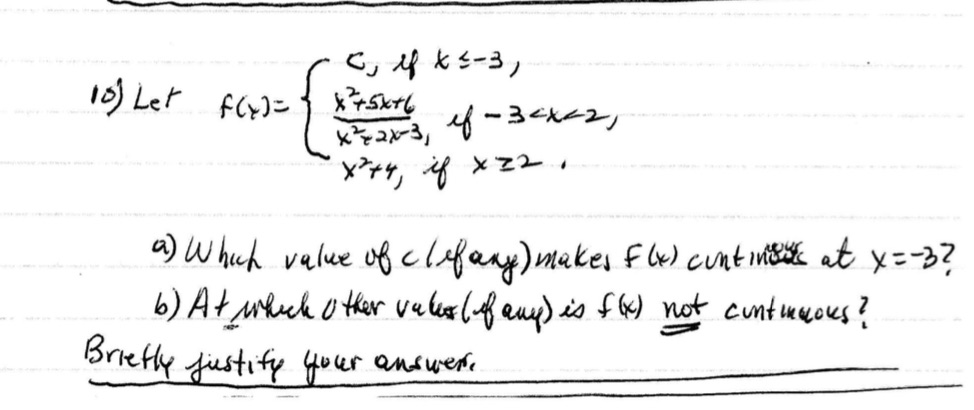 10) Let f(x) = { c, if x ≤ -3,
x²+5x+6 / x²+2x-3, if -3<x<2,
x²+4, if x ≥ 2.
a) Which value of c (if any) makes f(x) continuous at x=-3?
b) At which other values (if any) is f(x) not continuous?
Briefly justify your answers.